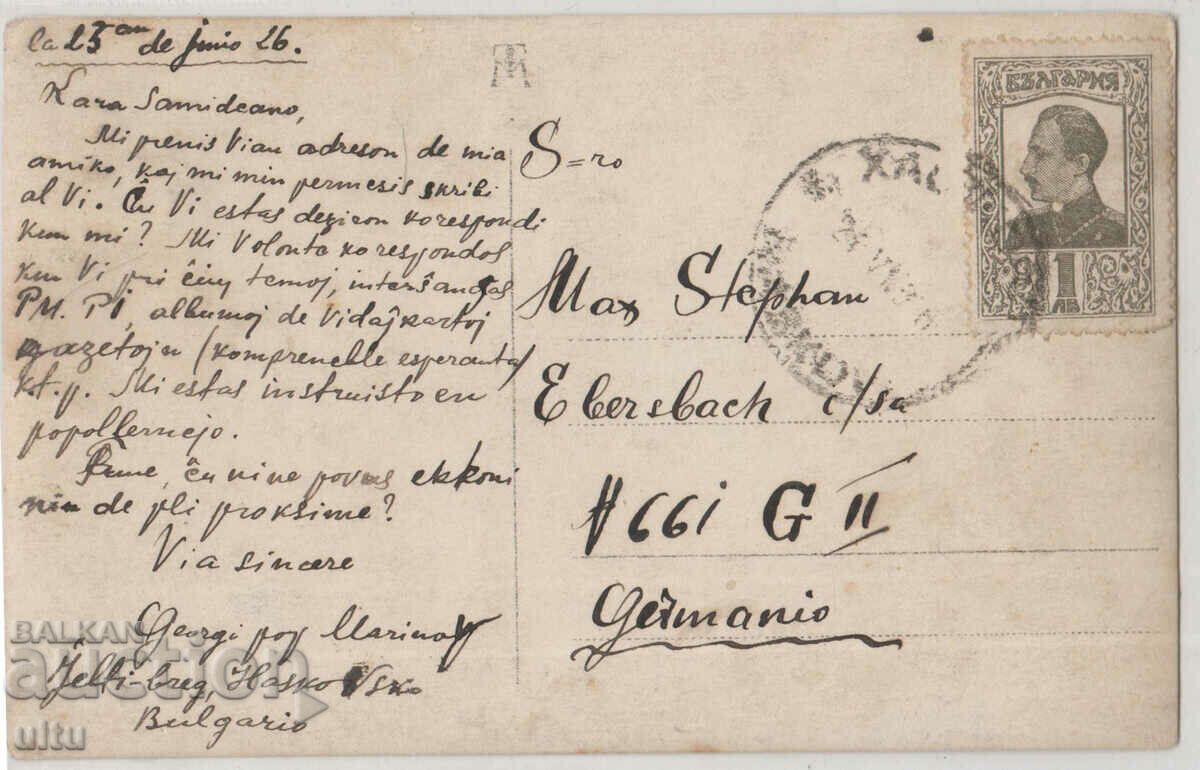 la 23an de junio 26.
Kara Samideano,
Mi prenis Vian adreson de mia
amiko, kaj mi min permesis skribi
al Vi. Ĉu Vi estas deziron korespondi
kun mi? Mi Volonta korespondos
kun Vi pri ĉiuj temoj, interŝanĝas
PM. PI, albumoj de Vidaĵkartoj
gazetojn (komprenelle esperanta)
k.t.p. Mi estas instruisto en
popollernejo.
ĉu ni ne povas ekkoni
nin de pli proksime?
Via sincere
Georgi pop Marinoff
Jelti-breg, Haskovsko
Bulgario
S=ro
Max Stephan
Ebersbach i/sa
#661 G II
Germanio
БЪЛГАРИЯ
1
ЛВ
BALKAN
auction
ultu